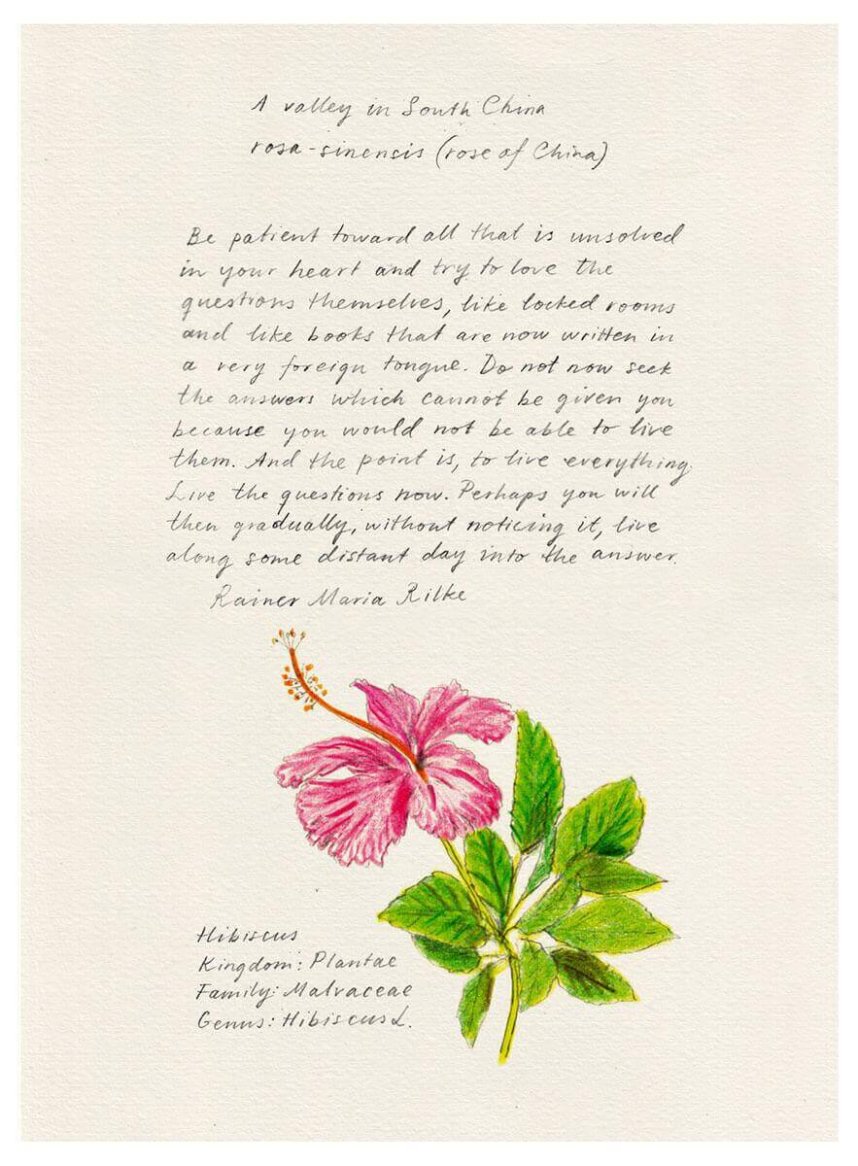 A valley in South China
rosa-sinensis (rose of China)
Be patient toward all that is unsolved
in your heart and try to love the
questions themselves, like locked rooms
and like books that are now written in
a very foreign tongue. Do not now seek
the answers which cannot be given you
because you would not be able to live
them. And the point is, to live everything.
Live the questions now. Perhaps you will
then gradually, without noticing it, live
along some distant day into the answer.
Rainer Maria Rilke
Hibiscus
Kingdom: Plantae
Family: Malvaceae
Genus: Hibiscus L.